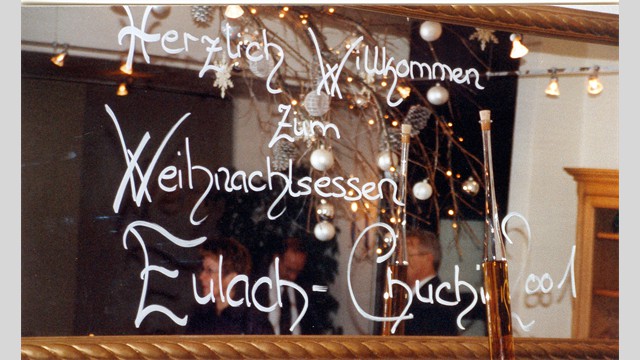 Herzlich Willkommen
zum
Weihnachtsessen
Eulach-Chuchi 2001